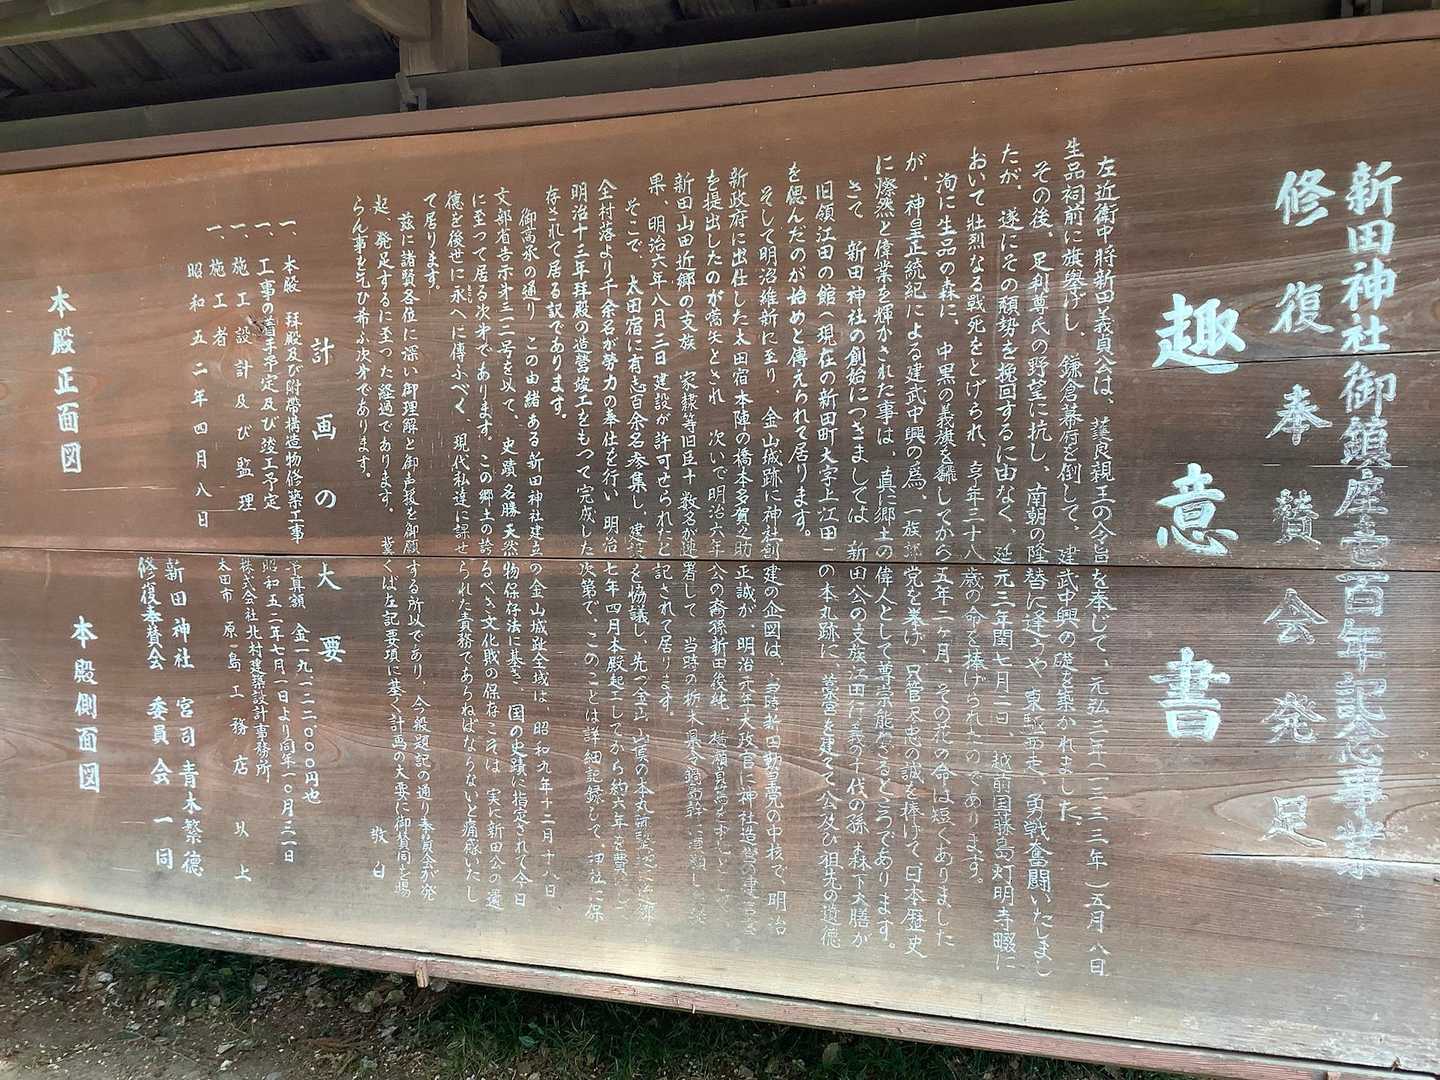 新田神社御鎮座壱百年記念事業
修復奉賛会発足
趣意書
左近衛中将新田義貞公は、護良親王の令旨を奉じて、元弘三年(一三三三年)五月八日
生品祠前に旗擧げし、鎌倉幕府を倒して、建武中興の礎を築かれました。
その後、足利尊氏の野望に抗し、南朝の隆替に逢うや、東駆西走、勇戦奮闘いたしまし
たが、遂にその頽勢を挽回するに由なく、延元三年閏七月二日、越前国藤島灯明寺畷に
おいて壮烈なる戦死をとげられ、享年三十八歳の命を捧げられたのであります。
洵に生品の森に、中黒の義旗を飜してから五年二ヶ月、その花の命は短くありました
が、神皇正統紀による建武中興の為、一族郎党を挙げ、只管尽忠の誠を捧げて日本歴史
に燦然と偉業を輝かされた事は、真に郷土の偉人として尊崇能ざるところであります。
さて、新田神社の創始につきましては、新田公の支族江田行義の十代の孫、森下大膳が
旧領江田の館(現在の新田町大字上江田)の本丸跡に、墓壇を建てて公及び祖先の遺徳
を偲んだのが始めと傳えられて居ります。
そして明治維新に至り、金山城跡に神社創建の企図は、当時新田勤皇党の中核で、明治
新政府に出仕した太田宿本陣の橋本多賀之助正誠が、明治元年大政官に神社造営の建言書
を提出したのが嚆矢とされ、次いで明治六年公の裔孫新田俊純、横瀬貞篤を中心として
新田山田近郷の支族、家隷等旧臣十数名が連署して、当時の栃木県令鍋島幹に請願した結
果、明治六年八月二日建設が許可せられたと記されて居ります。
そこで、太田宿に有志百余名参集し、建設を協議し、先づ金山山頂の本丸跡整地に近郷
全村落より千余名が勞力の奉仕を行い、明治七年四月本殿起工してから約六年を費して、
明治十三年拜殿の造營竣工をもって完成した次第で、このことは詳細記録して、神社に保
存されて居る訳であります。
御高承の通り、この由緒ある新田神社建立の金山城趾全域は、昭和九年十二月十八日、
文部省告示㐧三一二号を以て、史蹟名勝天然物保存法に基き、国の史蹟に指定されて今日
に至って居る次㐧であります。この郷土の誇るべき文化財の保存こそは、実に新田公の遺
徳を後世に永へに傳ふべく、現代私達に課せられた責務であらねばならないと痛感いたし
て居ります。
茲に諸賢各位に深い御理解と御声援を御願する所以であり、今般題記の通り奉賛会が発
起、発足するに至った経過であります。冀くば左記要項に基く計画の大要に御賛同を賜
らん事を乞ひ希ふ次㐧であります。
敬白
計画の大要
一、本殿、拜殿及び附帶構造物修築工事 予算額 金一九、一二二、〇〇〇円也
一、工事の着手予定及び竣工予定 昭和五二年七月一日より同年一〇月三一日
一、施工設計及び監理 株式会社北村建築設計事務所
一、施工者 太田市 原島工務店 以上
昭和五二年四月八日
新田神社 宮司 青木繁德
修復奉賛会 委員会一同
本殿正面図
本殿側面図